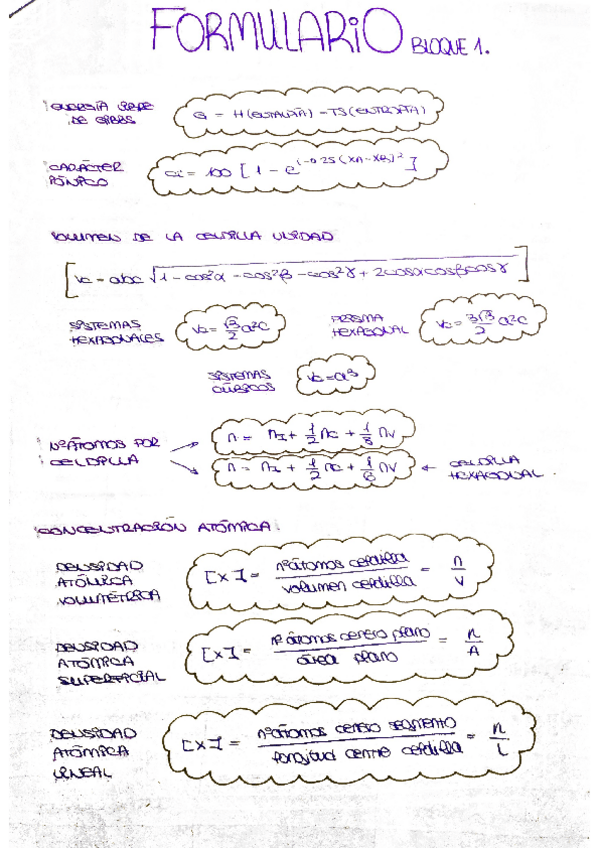 FORMULARIO BLOQUE 1.
ENERGÍA LIBRE DE GIBBS
G = H(ENTALPÍA) - TS(ENTROPÍA)
CARÁCTER IÓNICO
Ci = 100 [1 - e^(-0.25(XA-XB)²)]
VOLUMEN DE LA CELDILLA UNIDAD
Vc = abc √1 - cos²α - cos²β - cos²γ + 2cosαcosβcosγ
SISTEMAS HEXAGONALES
Vc = √3/2 a²c
PRISMA HEXAGONAL
Vc = 3√3/2 a²c
SISTEMAS CÚBICOS
Vc = a³
NºÁTOMOS POR CELDILLA
n = nI + 1/2 nC + 1/8 nV
n = nI + 1/2 nC + 1/6 nV ← CELDILLA HEXAGONAL.
CONCENTRACIÓN ATÓMICA:
DENSIDAD ATÓMICA VOLUMÉTRICA
[X] = nºátomos celdilla / volumen celdilla = n/V
DENSIDAD ATÓMICA SUPERFICIAL
[X] = nº átomos centro plano / área plano = n/A
DENSIDAD ATÓMICA LINEAL
[X] = nºátomos centro segmento / longitud centre celdilla = n/L